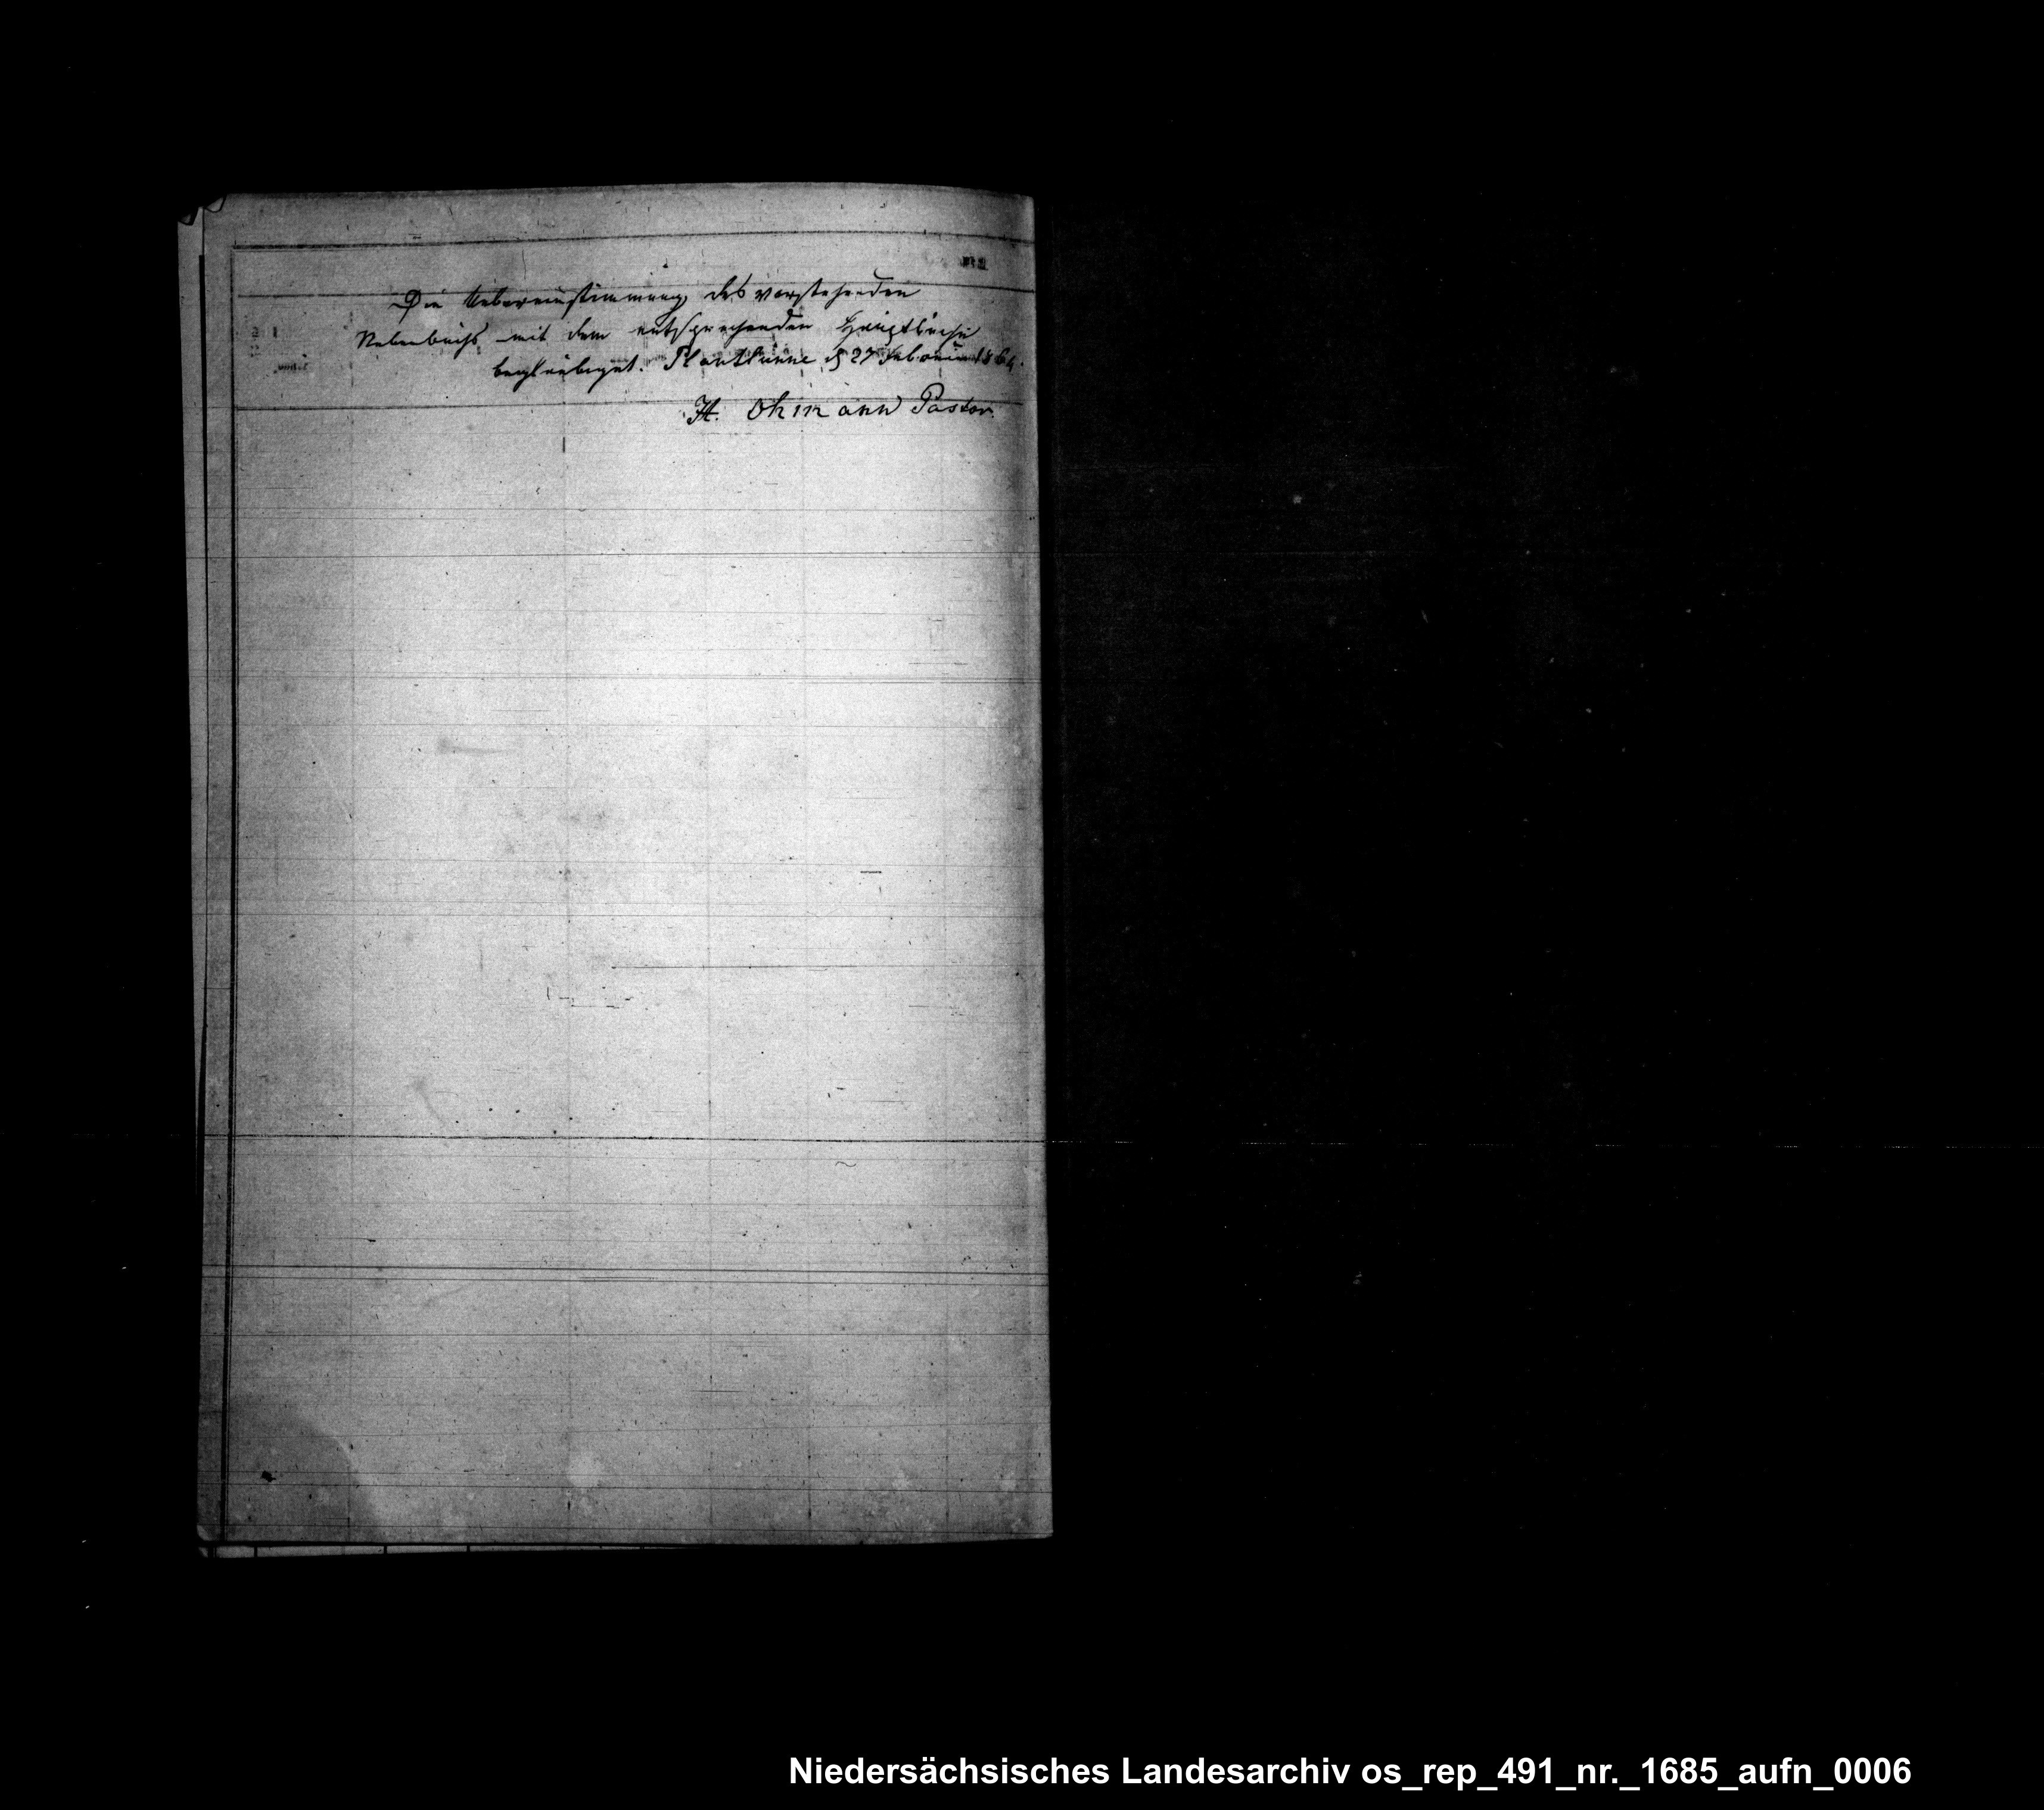 Die Uebereinstimmung des vorstehenden
Nebenbuchs mit dem entsprechenden Hauptbuche
beglaubiget. Plantlünne d 27 Februar 1864.
H. Ohmann Pastor.
Niedersächsisches Landesarchiv os_rep_491_nr._1685_aufn_0006